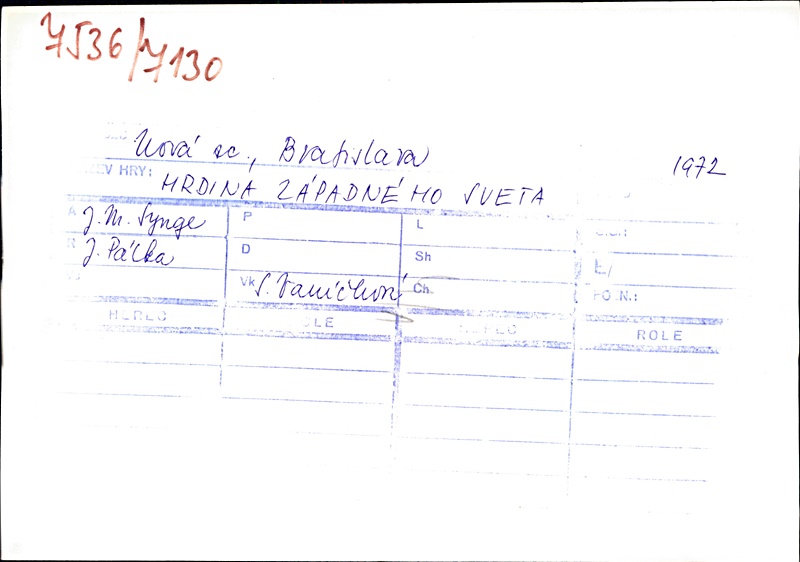 7536/7130
Nová sc., Bratislava
1972
V HRY: HRDINA ZÁPADNÉHO SVETA
A J. M. Synge P L
R J. Pálka D Sh
Vk S. Vaníčková Ch PO.N.:
HEREC ROLE HEREC ROLE